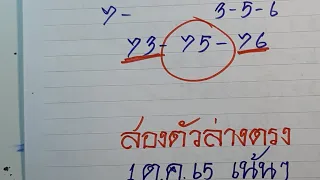 7- 3-5-6
73- 75- 76
สองตัวล่างตรง
1 ต.ค. 65 เน้นๆ